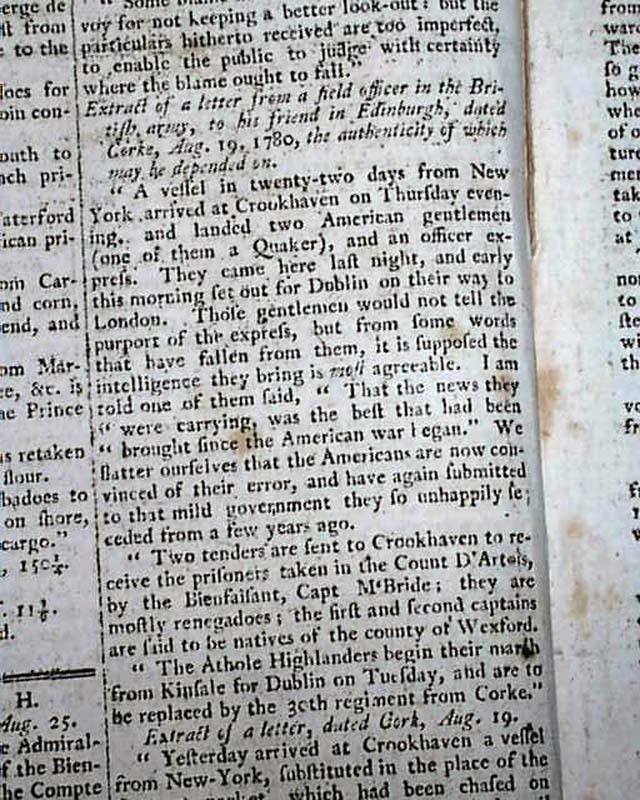 erge de
st from
e to the
does for
oin con-
outh to
nch pri-
aterford
ican pri-
om Car-
nd corn,
end, and
om Mar-
ce, &c. is
he Prince
as retaken
flour.
badoes to
on ſhore,
cargo."
, 150¼.
. 11⅛.
d.
H.
Aug. 25.
e Admiral-
f the Bien-
he Compte
" Some blame
voy for not keeping a better look-out: but the
particulars hitherto received are too imperfect,
to enable the public to judge with certainty
where the blame ought to fall."
Extract of a letter from a field officer in the Bri-
tiſh army, to his friend in Edinburgh, dated
Corke, Aug. 19, 1780, the authenticity of which
may be depended on.
" A veſſel in twenty-two days from New
York arrived at Crookhaven on Thurſday even-
ing, and landed two American gentlemen
(one of them a Quaker), and an officer ex-
preſs. They came here laſt night, and early
this morning ſet out for Dublin on their way to
London. Thoſe gentlemen would not tell the
purport of the expreſs, but from ſome words
that have fallen from them, it is ſuppoſed the
intelligence they bring is moſt agreeable. I am
told one of them ſaid, " That the news they
" were carrying, was the beſt that had been
" brought ſince the American war began." We
flatter ourſelves that the Americans are now con-
vinced of their error, and have again ſubmitted
to that mild government they ſo unhappily ſe-
ceded from a few years ago.
" Two tenders are ſent to Crookhaven to re-
ceive the priſoners taken in the Count D'Artois,
by the Bienfaiſant, Capt M'Bride; they are
moſtly renegadoes; the firſt and ſecond captains
are ſaid to be natives of the county of Wexford.
" The Athole Highlanders begin their march
from Kinſale for Dublin on Tueſday, and are to
be replaced by the 30th regiment from Corke."
Extract of a letter, dated Cork, Aug. 19.
" Yeſterday arrived at Crookhaven a veſſel
from New-York, ſubſtituted in the place of the
which had been chaſed on
from
ware
The
ſo g
how
whe
of o
ture
mer
tak
to
at
no
to
ſte
wi
th
vo
fr